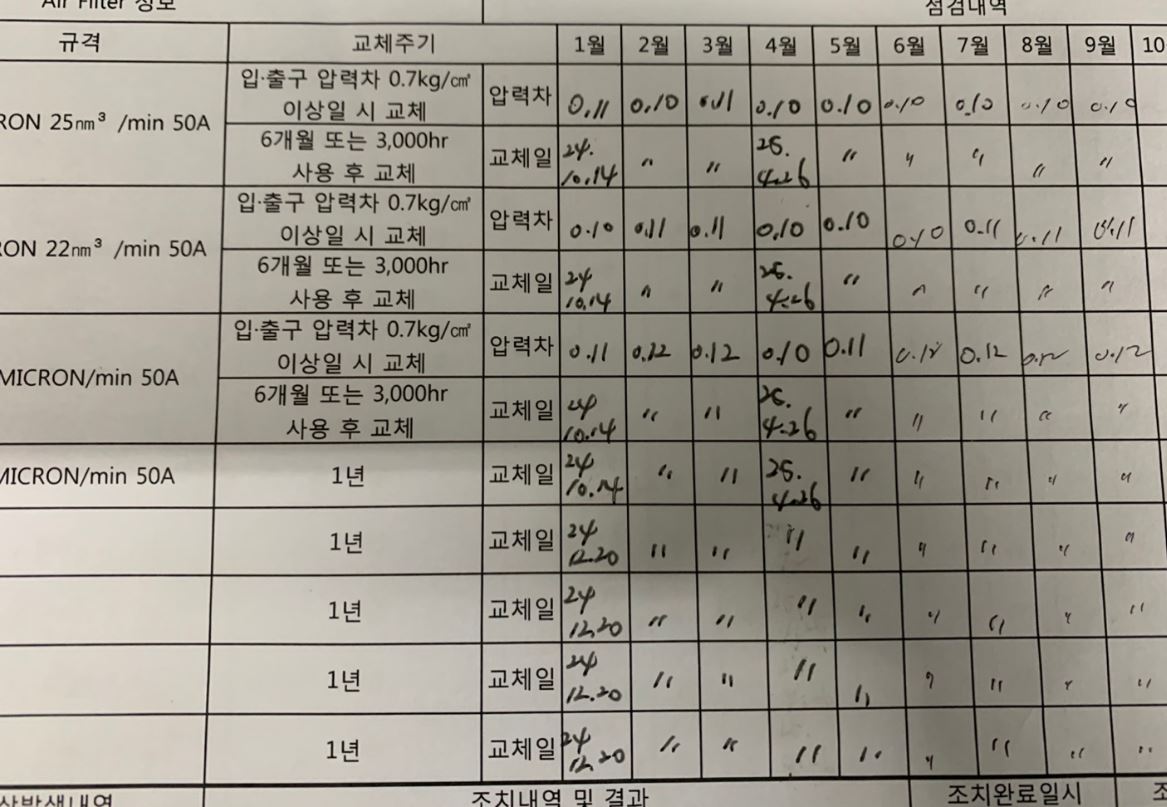 Air Filter 정보 점검내역
규격 교체주기 1월 2월 3월 4월 5월 6월 7월 8월 9월 10
RON 25nm³ /min 50A
입·출구 압력차 0.7kg/㎠
이상일 시 교체
압력차 0.11 0.10 0.11 0.10 0.10 0.10 0.10 0.10 0.10
6개월 또는 3,000hr
사용 후 교체
교체일 24. 10.14 〃 〃 25. 4.26 〃 〃 〃 〃 〃
RON 22nm³ /min 50A
입·출구 압력차 0.7kg/㎠
이상일 시 교체
압력차 0.10 0.11 0.11 0.10 0.10 0.10 0.11 0.11 0.11
6개월 또는 3,000hr
사용 후 교체
교체일 24 10.14 〃 〃 25. 4.26 〃 〃 〃 〃 〃
MICRON/min 50A
입·출구 압력차 0.7kg/㎠
이상일 시 교체
압력차 0.11 0.12 0.12 0.10 0.11 0.12 0.12 0.12 0.12
6개월 또는 3,000hr
사용 후 교체
교체일 24 10.14 〃 〃 25. 4.26 〃 〃 〃 〃 〃
MICRON/min 50A 1년 교체일 24 10.14 〃 〃 25. 4.26 〃 〃 〃 〃 〃
1년 교체일 24 12.20 〃 〃 〃 〃 〃 〃 〃 〃
1년 교체일 24 12.20 〃 〃 〃 〃 〃 〃 〃 〃
1년 교체일 24 12.20 〃 〃 〃 〃 〃 〃 〃 〃
1년 교체일 24 12.20 〃 〃 〃 〃 〃 〃 〃 〃
상발생내역 조치내역 및 결과 조치완료일시 조